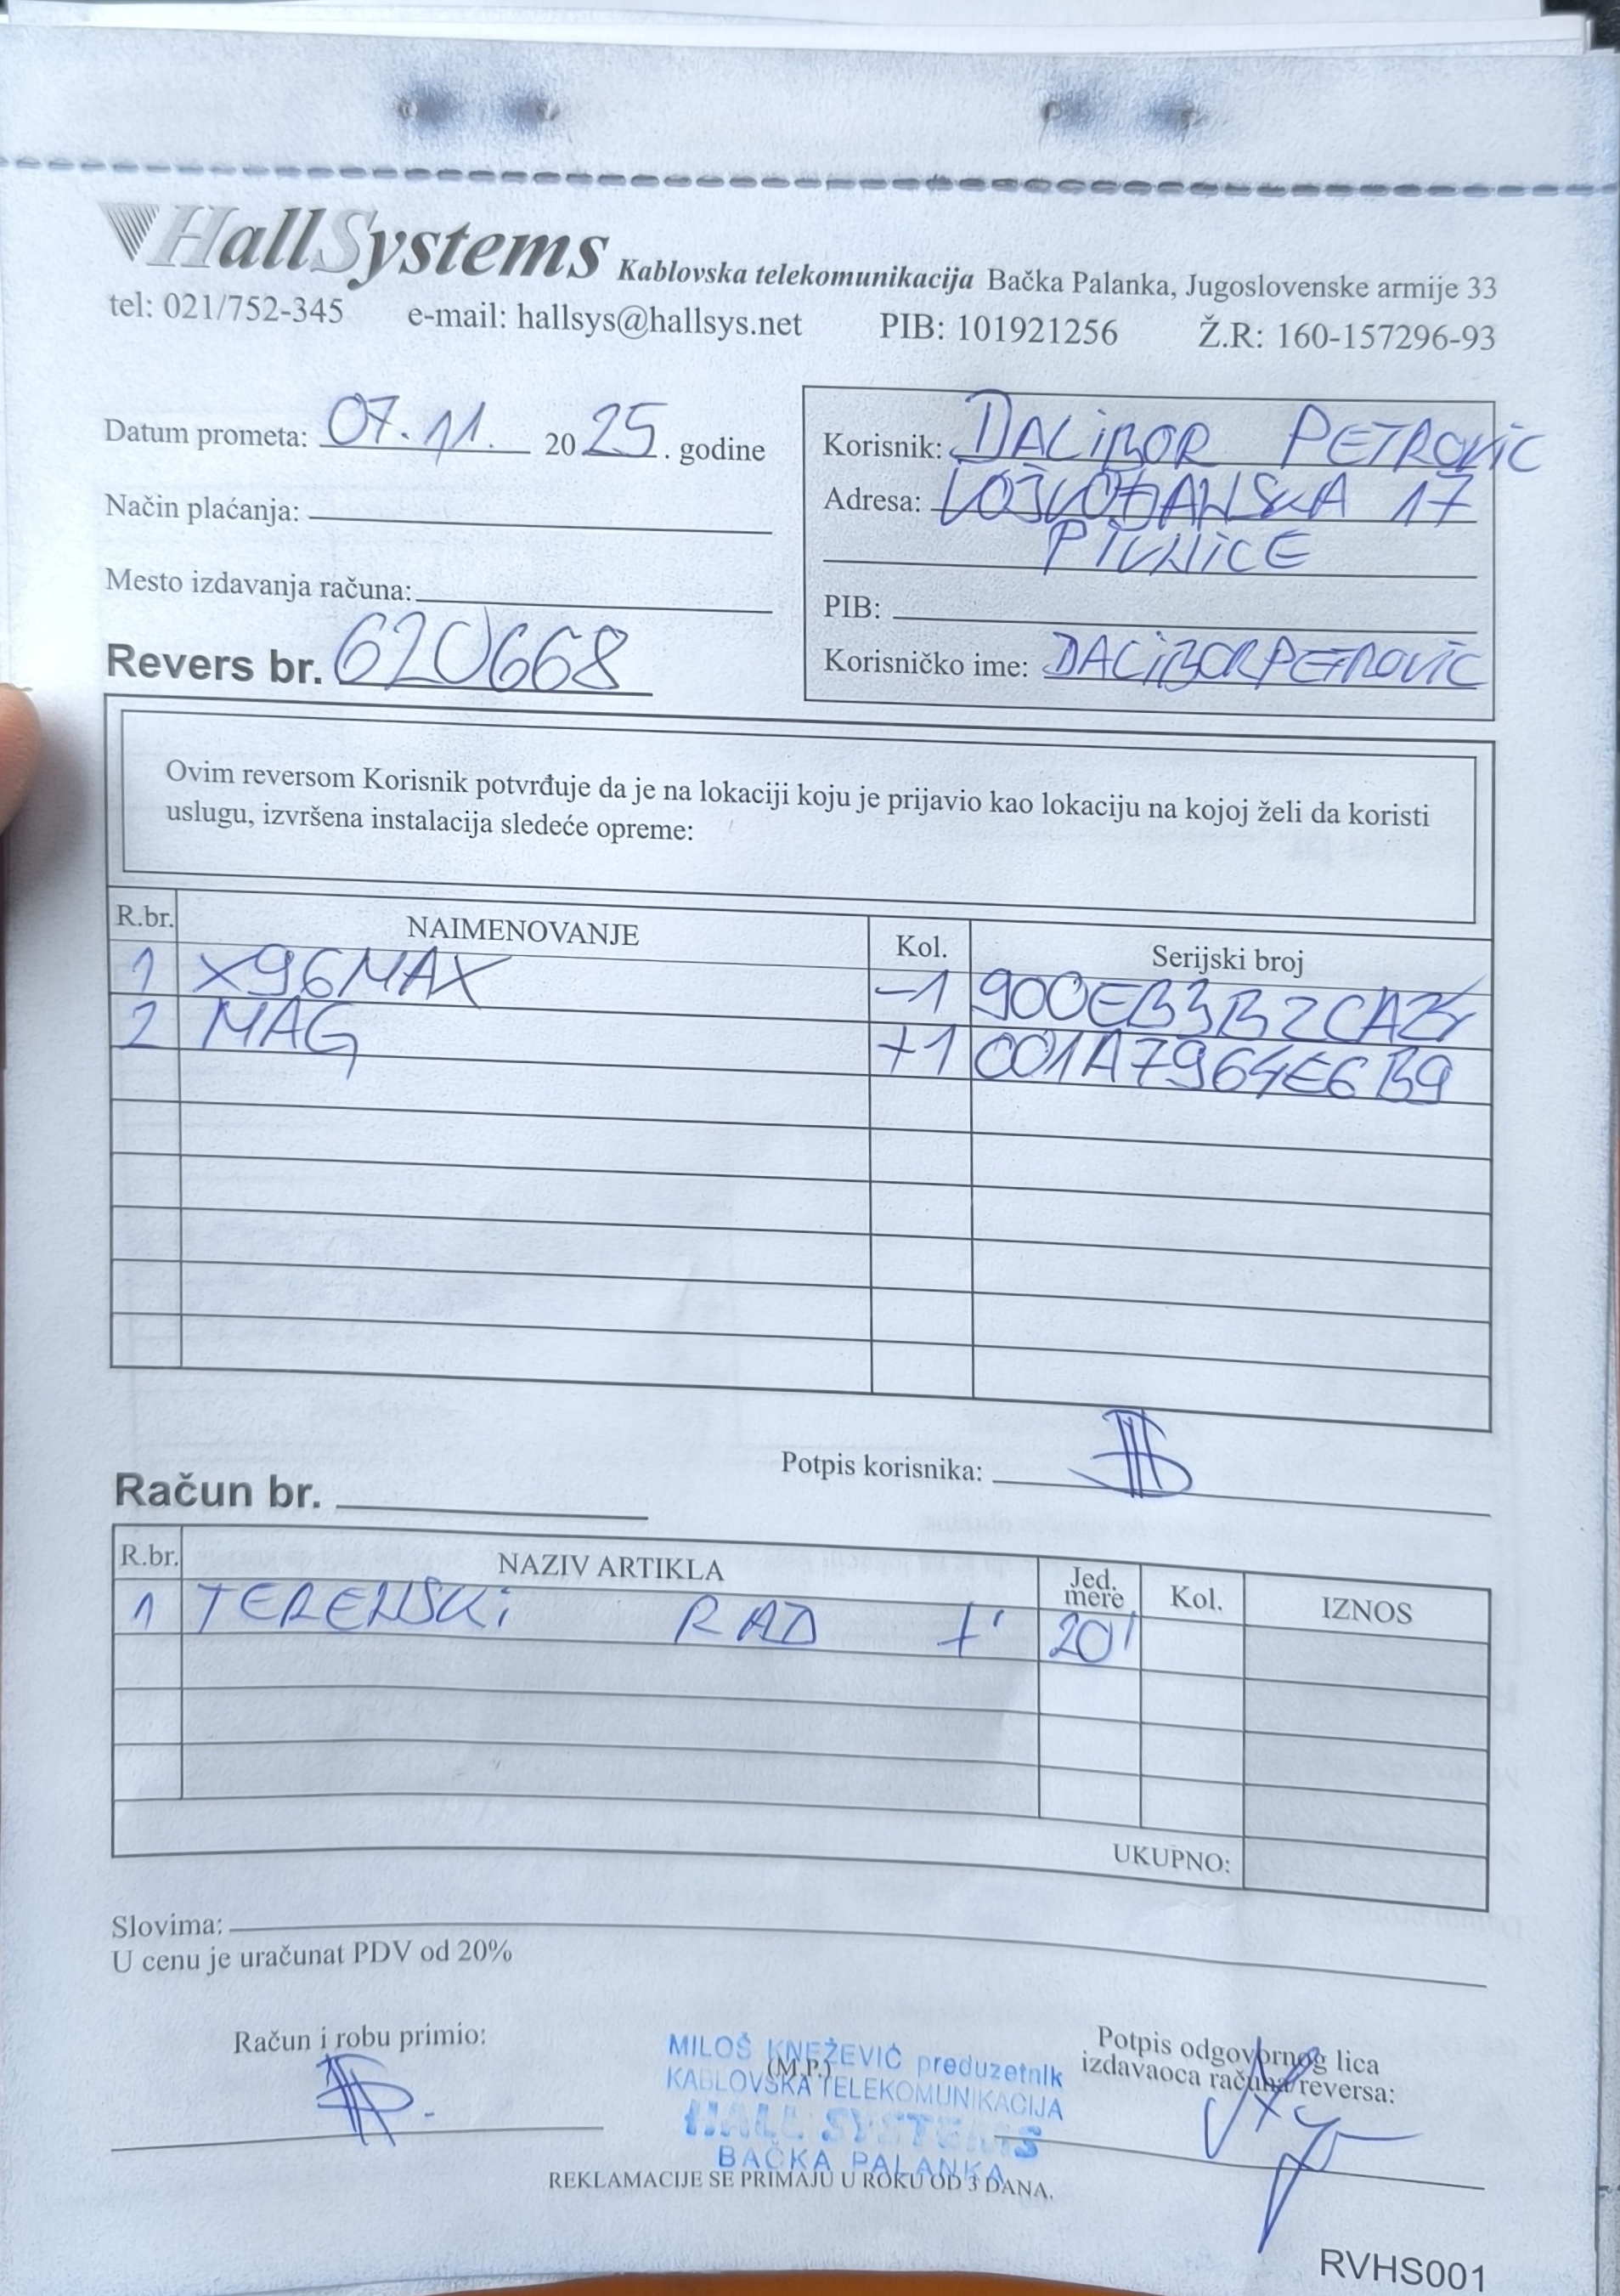 HallSystems Kablovska telekomunikacija Bačka Palanka, Jugoslovenske armije 33
tel: 021/752-345 e-mail: hallsys@hallsys.net PIB: 101921256 Ž.R: 160-157296-93
Datum prometa: 07.11. 2025. godine
Način plaćanja:
Mesto izdavanja računa:
Revers br. 620668
Korisnik: DALIBOR PETROVIĆ
Adresa: VOJVOĐANSKA 17
PIVNICE
PIB:
Korisničko ime: DALIBORPETROVIC
Ovim reversom Korisnik potvrđuje da je na lokaciji koju je prijavio kao lokaciju na kojoj želi da koristi
uslugu, izvršena instalacija sledeće opreme:
R.br. NAIMENOVANJE Kol. Serijski broj
1 X96MAX -1
2 MAG +1 001A7964E6B9
Potpis korisnika:
Račun br.
R.br. NAZIV ARTIKLA Jed. mere Kol. IZNOS
1 TERENSKI RAD 20'
UKUPNO:
Slovima:
U cenu je uračunat PDV od 20%
Račun i robu primio:
(M.P.)
MILOŠ KNEŽEVIĆ preduzetnik
KABLOVSKA TELEKOMUNIKACIJA
HALL SYSTEMS
BAČKA PALANKA
Potpis odgovornog lica
izdavaoca računa/reversa:
REKLAMACIJE SE PRIMAJU U ROKU OD 3 DANA.
RVHS001